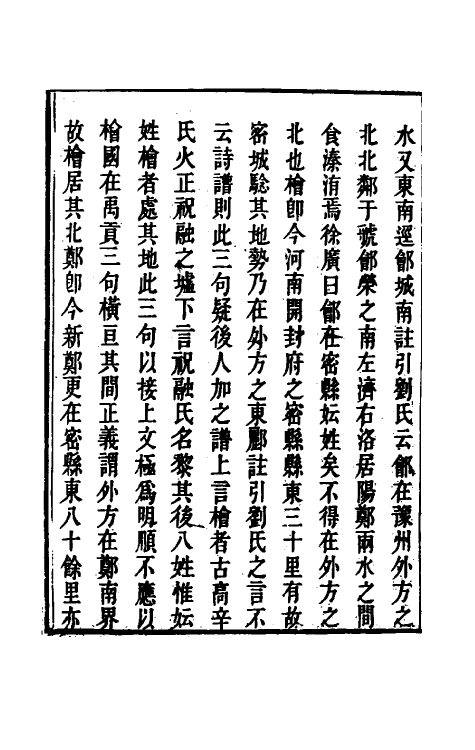 水又東南逕鄶城南註引劉氏云鄶在豫州外方之
北北鄰于虢鄶滎之南左濟右洛居陽鄭兩水之間
食溱洧焉徐廣曰鄶在密縣妘姓矣不得在外方之
北也檜卽今河南開封府之密縣縣東三十里有故
密城驗其地勢乃在外方之東酈註引劉氏之言不
云詩譜則此三句疑後人加之譜上言檜者古高辛
氏火正祝融之墟下言祝融氏名黎其後八姓惟妘
姓檜者處其地此三句以接上文極爲明順不應以
檜國在禹貢三句橫亘其間正義謂外方在鄭南界
故檜居其北鄭卽今新鄭更在密縣東八十餘里亦